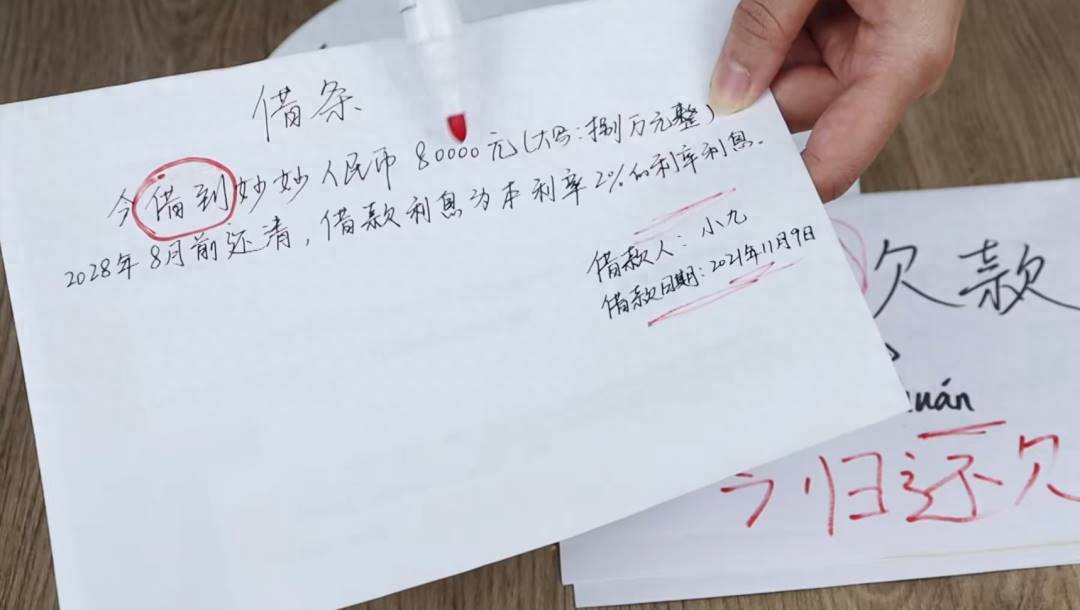 借条
今借到妙妙人民币80000元(大写:捌万元整)
2028年8月前还清,借款利息为本利率2%的利率利息.
借款人:小九
借款日期:2021年11月9日
欠款
uán
今归还欠